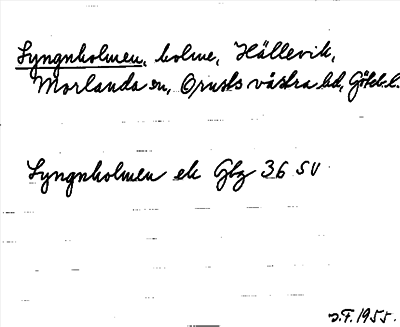 Lyngnholmen, holme, Hällevik,
Morlanda sn, Orusts västra hd, Göteb. l.
Lyngnholmen ek Gbg 36 SV
J.F. 1955.